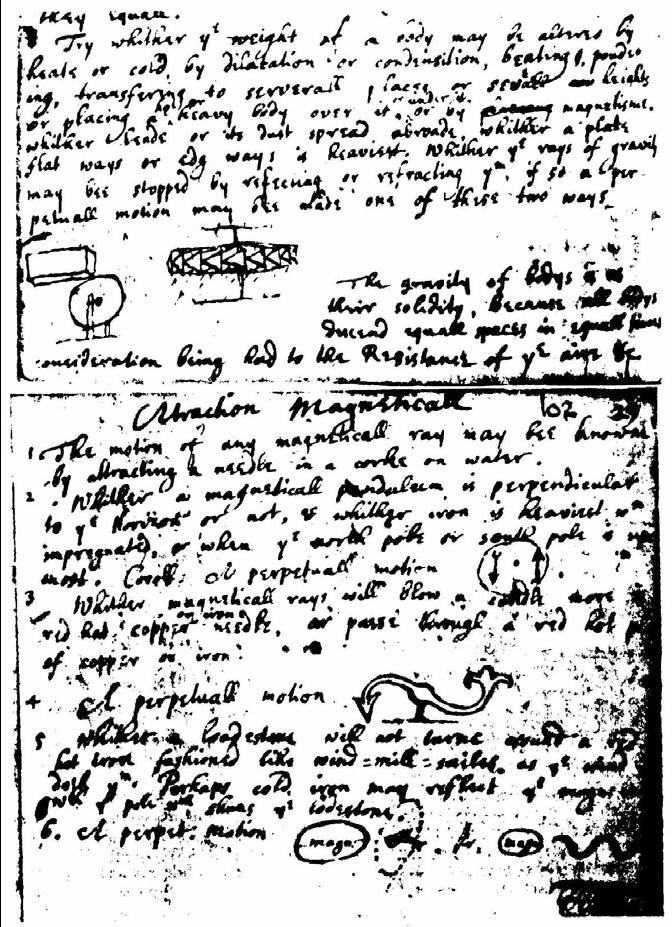 they equall.
Try whither yᵉ weight of a body may be altered by
heate or cold, by dilatation or condensition, beating, powder
ing, transferring to serverall places or severall heights
or placing a hot or heavy body over it, or under it, or by magnetisme.
whither leade or its dust spread abroade, whither a plate
flat ways or edg ways is heaviest. Whither yᵉ rays of gravity
may bee stopped by reflecting or refracting yᵐ, if so a per
petuall motion may bee made one of these two ways.
The gravity of bodys is as
their solidity, because all bodys
descend equall spaces in equall times
consideration being had to the Resistance of yᵉ aire &c
Attraction Magneticall 102 29
1 The motion of any magneticall ray may bee knowne
by attracting a needle in a corke on water.
2 Whither a magneticall pendulum is perpendicular
to yᵉ Horizon or not, & whither iron is heaviest wⁿ
impregnated, or when yᵉ north pole or south pole is upp
most. Coroll: A perpetuall motion
3 Whither magneticall rays will blow a candle move a
red hot copper or iron needle, or passe through a red hot
of copper or iron.
4 A perpetuall motion
5 Whither a loadestone will not turne around a red
hot iron fashioned like wind=mill=sailes, as yᵉ wind
doth yᵐ. Perhaps cold iron may reflect yᵉ
pole shuns yᵉ lodestone.
6. A perpet: motion
magn. fr. fr. magn